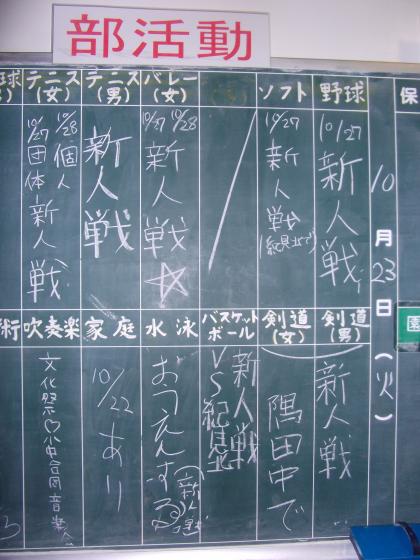 部活動
保
10月23日(火)
園
野球
10/27
新人戦
ソフト
10/27
新人戦
(紀見北で)
バレー
(女)
10/27 10/28
新人戦
☆
テニス
(男)
新人戦
テニス
(女)
10/28 個人
10/27 団体
新人戦
球
剣道
(男)
新人戦
剣道
(女)
隅田中で
バスケット
ボール
新人戦
VS紀見
水泳
おうえんする
家庭
10/22 あり
吹奏楽
文化祭
術